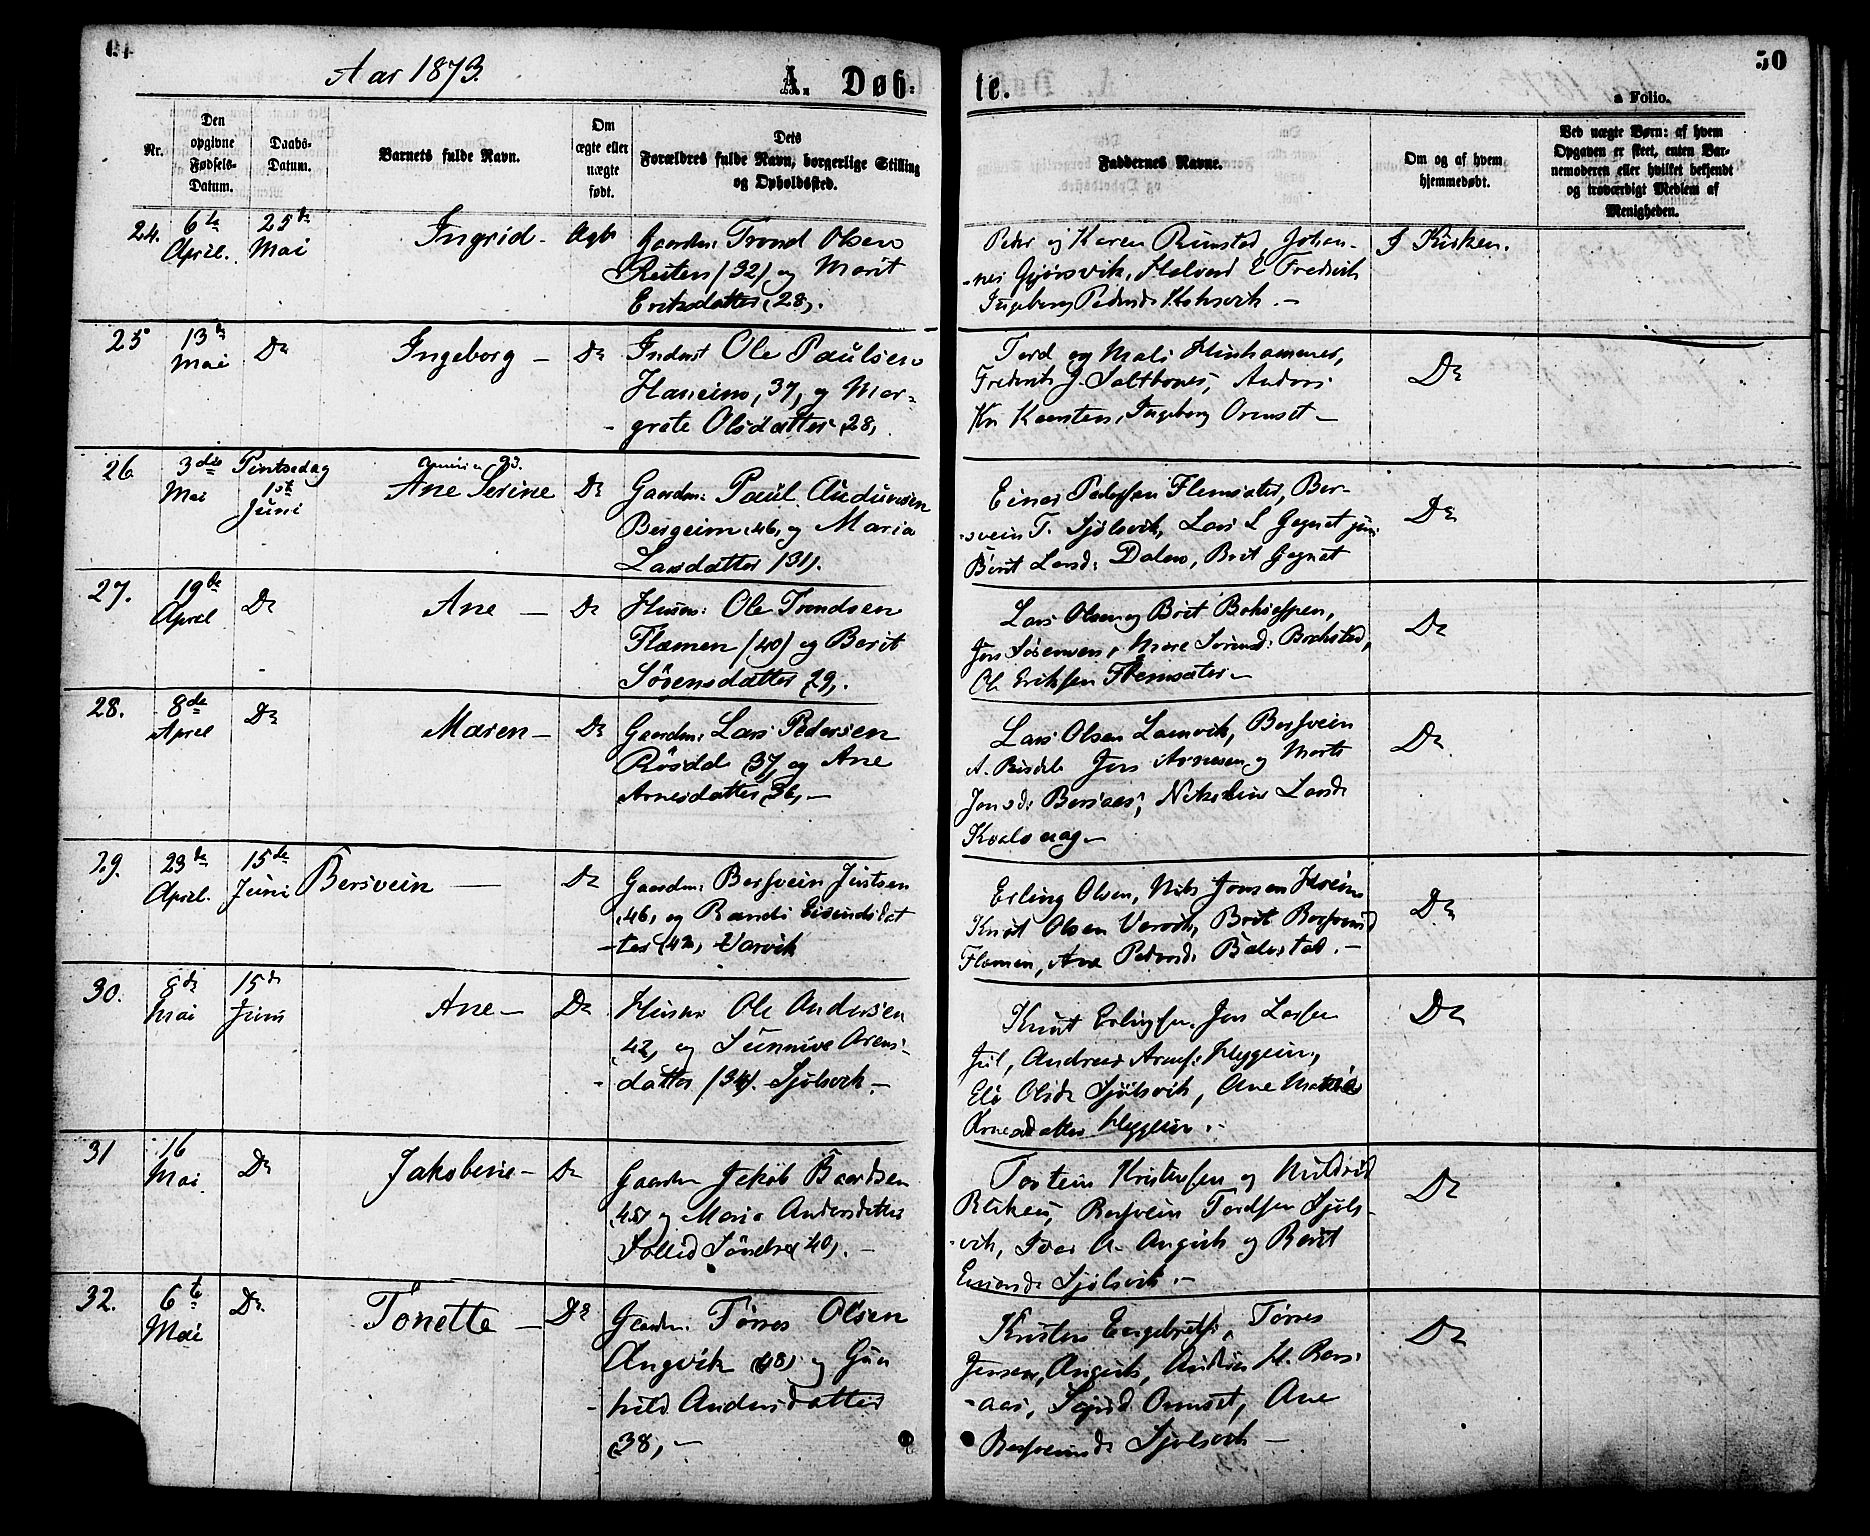 Aar 1873.
A. Døb-
te.
50
a Folio.
Nr.
Den
opgivne
Fødsels-
Datum.
Daabs-
Datum.
Barnets fulde Navn.
Om
ægte eller
uægte
født.
Dets
Forældres fulde Navn, borgerlige Stilling
og Opholdssted.
Faddernes Navne.
Om og af hvem
hjemmedøbt.
Ved uægte Børn: af hvem
Opgaven er skeet, enten Bar-
nemoderen eller hvilket bekjendt
og troværdigt Medlem af
Menigheden.
24. 6te April. 25de Mai Ingrid - Ægte
Gaardm: Trond Olsen
Reiten (32) og Marit
Eriksdatter (28).
Peder og Karen Rimstad, Johan-
-nes Gjørsvik, Halvard E Fredrik
Ingeborg Pedersd:
I Kirken.
25 13de Mai Do Ingeborg - Do
Inderst Ole Paulsen
Haneimo, 37, og Mar-
-grete Olsdatter 28,
Tord og Mali
Frederik J. Saltbones, Anders
Kn Karsten, Ingeborg Ormset -
Do
26 3die Mai Pintsedag 1ste Juni Ane Serine Do
Gaardm: Paul Audunsen
Bergeim 46, og Maria
Larsdatter (31).
Einar Pedersen Flemsæter, Ber-
-svein T. Sjölsvik, Lars L Gagnat jun:
Berit Larsd: Dalen, Brit Gagnat
Do
27. 19de April Do Ane - Do
Husm: Ole Trondsen
Flemmen (40) og Berit
Sörensdatter 29,.
Lars Olsen og Brit
Jon Sörensen, Mare Sörensd: Brakstad,
Ole Eriksen Flemsæter -
Do
28. 8de April Do Maren - Do
Gaardm: Lars Pedersen
Rösdal (37, og Ane
Arnesdatter, 36, -
Lars Olsen Lamvik, Bersvein
A. Jon Arnesen og Marit
Jonsd: Bersaas, Larsd:
Kvalvaag -
Do
29. 23de April. 15de Juni Bersvein - Do
Gaardm: Bersvein Justsen
46, og Randi Eisindsdat
-ter (42, Varvik
Erling Olsen, Nils Jonsen
Knut Olsen Varvik, Brit Bersveinsd
Flemmen, Ane Pedersd: Balestad. -
Do
30. 8de Mai 15de Juni Ane - Do
Husm Ole Andersen
42, og Sunnive Arens-
-datter (34). Sjölsvik -
Knut Erlingsen, Jon Larsen
Jul, Andreas Arnes: Hyggein,
Eli Olsdr Sjölsvik, Ane
Arnesdatter Hyggein. -
Do
31 16 Mai Do Jakobine - Do
Gaardm Jakob Baardsen
(45) og Maria Andersdatter
Sollid Söndre (40). -
Tostein Kristensen og Guldrid
Bliken, Bersvein Tordsen Sjöls-
-vik, Ivar A. Angvik og Berit
Sjölsvik. -
Do
32. 6te Mai Do Tonette - Do
Gaardm: Tørres Olsen
Angvik (48, og Gun
-hild Andersdatter
(38, -
Kristen Engebrets:, Tørres
Jensen, Angvik, H. Bers-
-aas, Sigrid Ormset, Ane
Bersveinsdr Sjölsvik -
Do